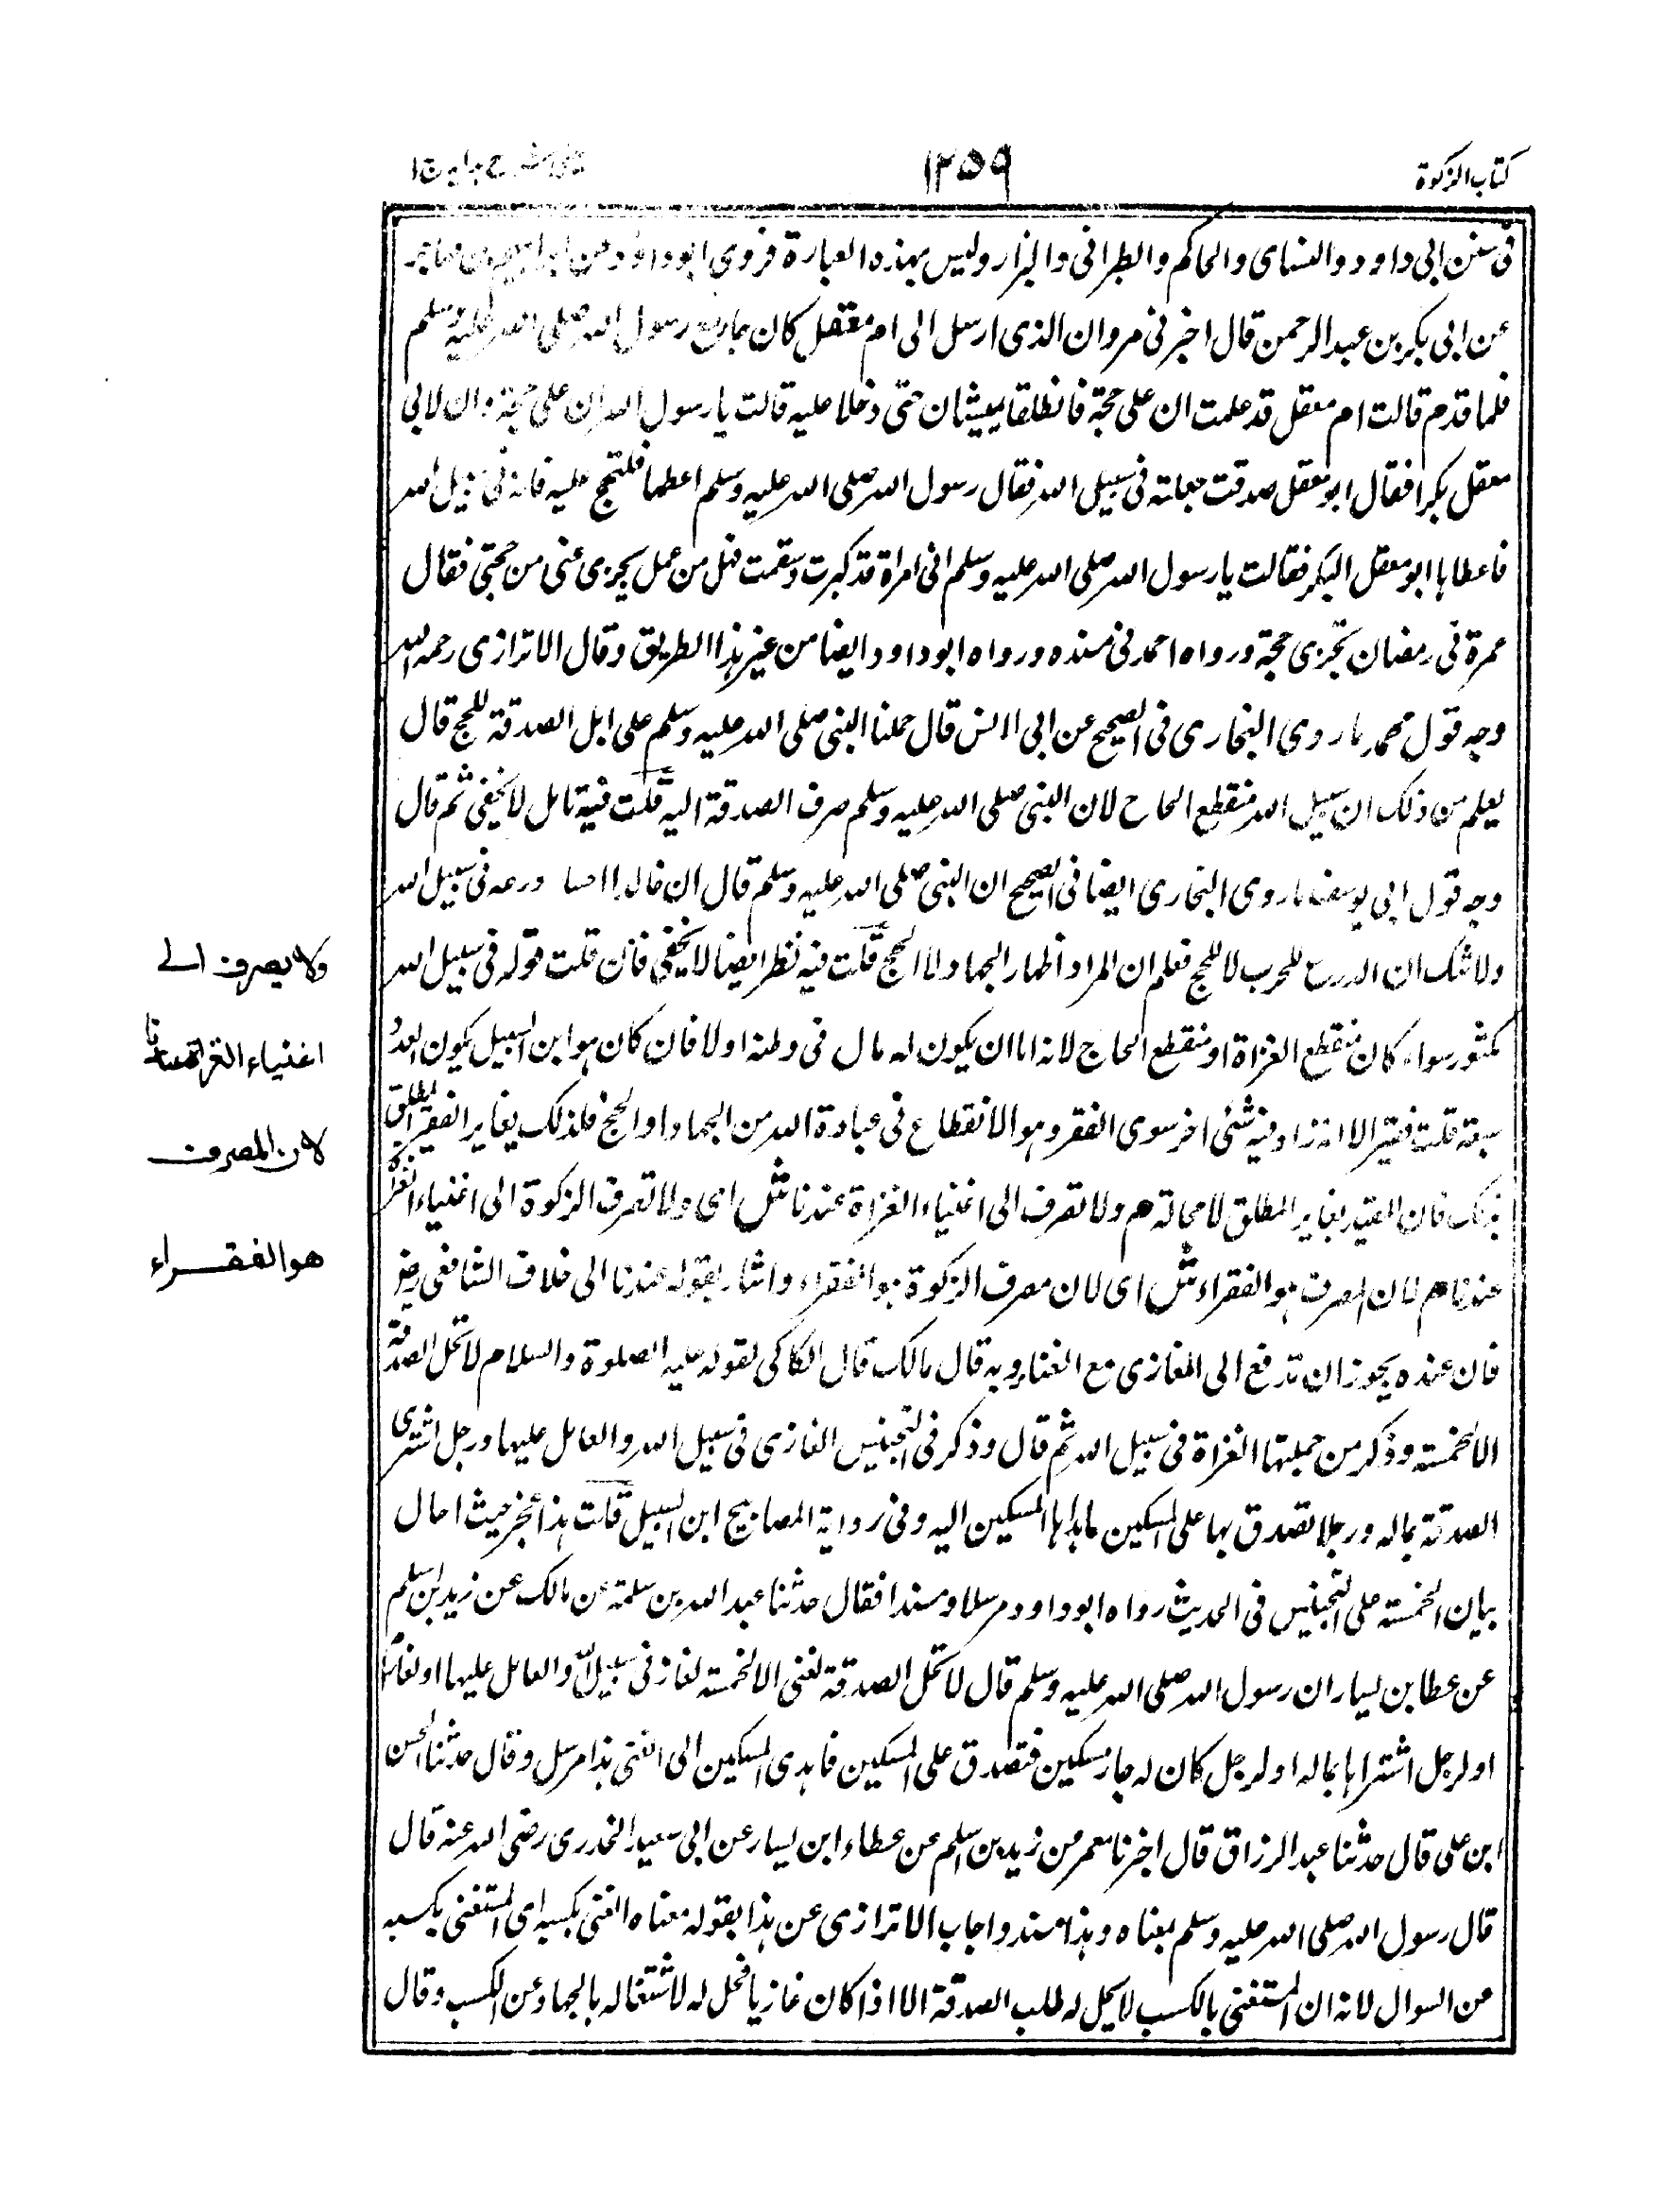 كتاب الزكوة
١٢٥٩
فى سنن ابى داود والنساى والحاكم والطبرانى والبزار وليس بهذه العبارة فروى ابو داود عن ابراهيم بن مهاجر
عن ابى بكر بن عبد الرحمن قال اخبرنى مروان الذى ارسل الى ام معقل كان جاء مع رسول الله صلى الله عليه وسلم
فلما قدم قالت ام معقل قد علمت ان على حجة فانطلقا يمشيان حتى دخلا عليه قالت يا رسول الله ان على حجة وان لابى
معقل بكرا فقال ابو معقل صدقت جعلته فى سبيل الله فقال رسول الله صلى الله عليه وسلم اعطها فلتحج عليه فانه فى سبيل الله
فاعطاها ابو معقل البكر فقالت يا رسول الله صلى الله عليه وسلم انى امراة قد كبرت وسقمت فهل من عمل يجزى عنى من حجتى فقال
عمرة فى رمضان تجزى حجة ورواه احمد فى مسنده ورواه ابو داود ايضا من غير هذا الطريق وقال الاترازى رحمه الله
وجه قول محمد ما روى البخارى فى الصحيح عن ابى الانس قال حملنا النبى صلى الله عليه وسلم على ابل الصدقة للحج قال
يعلم من ذلك ان سبيل الله منقطع الحاج لان النبى صلى الله عليه وسلم صرف الصدقة اليه قلت فيه تامل لا يخفى ثم قال
وجه قول ابى يوسف ما روى البخارى ايضا فى الصحيح ان النبى صلى الله عليه وسلم قال ان خالدا درعه فى سبيل الله
ولا شك ان الدرع للحرب لا للحج فعلم ان المراد اظهار الجهاد لا الحج قلت فيه نظر ايضا لا يخفى فان قلت قوله فى سبيل الله
مكثور سواء كان منقطع الغزاة او منقطع الحاج لانه اما ان يكون له مال فى وطنه او لا فان كان هو ابن السبيل يكون العدد
سبعة قلت فقير الا انه زاد فيه شئى اخر سوى الفقر وهو الانقطاع فى عبادة الله من الجهاد او الحج فلذلك يغاير الفقير المطلق
بذلك فان المقيد يغاير المطلق لا محالة م ولا تصرف الى اغنياء الغزاة عندنا ش اى ولا تصرف الزكوة الى اغنياء الغزاة
عندنا م لان المصرف هو الفقراء ش اى لان مصرف الزكوة هو الفقراء واشار بقوله عندنا الى خلاف الشافعى رض
فان عنده يجوز ان تدفع الى الغازى مع الغناء وبه قال مالك قال الكاكى لقوله عليه الصلوة والسلام لا تحل الصدقة
الا لخمسة وذكر من جملتها الغزاة فى سبيل الله ثم قال وذكر فى التجنيس الغازى فى سبيل الله والعامل عليها ورجل اشترى
الصدقة بماله ورجلا تصدق بها على المسكين فاهداها المسكين اليه وفى رواية المصابيح ابن السبيل قلت هذا عجز حيث احال
بيان الخمسة على التجنيس فى الحديث رواه ابو داود مرسلا ومسندا فقال حدثنا عبد الله بن سلمة عن مالك عن زيد ابن اسلم
عن عطا بن يسار ان رسول الله صلى الله عليه وسلم قال لا تحل الصدقة لغنى الا لخمسة لغاز فى سبيل الله والعامل عليها او لغارم
او لرجل اشتراها بماله او لرجل كان له جار مسكين فتصدق على المسكين فاهدى المسكين الى الغنى هذا مرسل وقال حدثنا الحسن
ابن على قال حدثنا عبد الرزاق قال اخبرنا معمر عن زيد بن اسلم عن عطاء ابن يسار عن ابى سعيد الخدرى رضى الله عنه قال
قال رسول الله صلى الله عليه وسلم بمعناه وهذا مسند واجاب الاترازى عن هذا بقوله معناه الغنى بكسبه اى المستغنى بكسبه
عن السوال لانه ان المستغنى بالكسب لا يحل له طلب الصدقة الا اذا كان غازيا فحل له لاشتغاله بالجهاد عن الكسب وقال
ولا يصرف الى
اغنياء الغزاة عندنا
لان المصرف
هو الفقراء